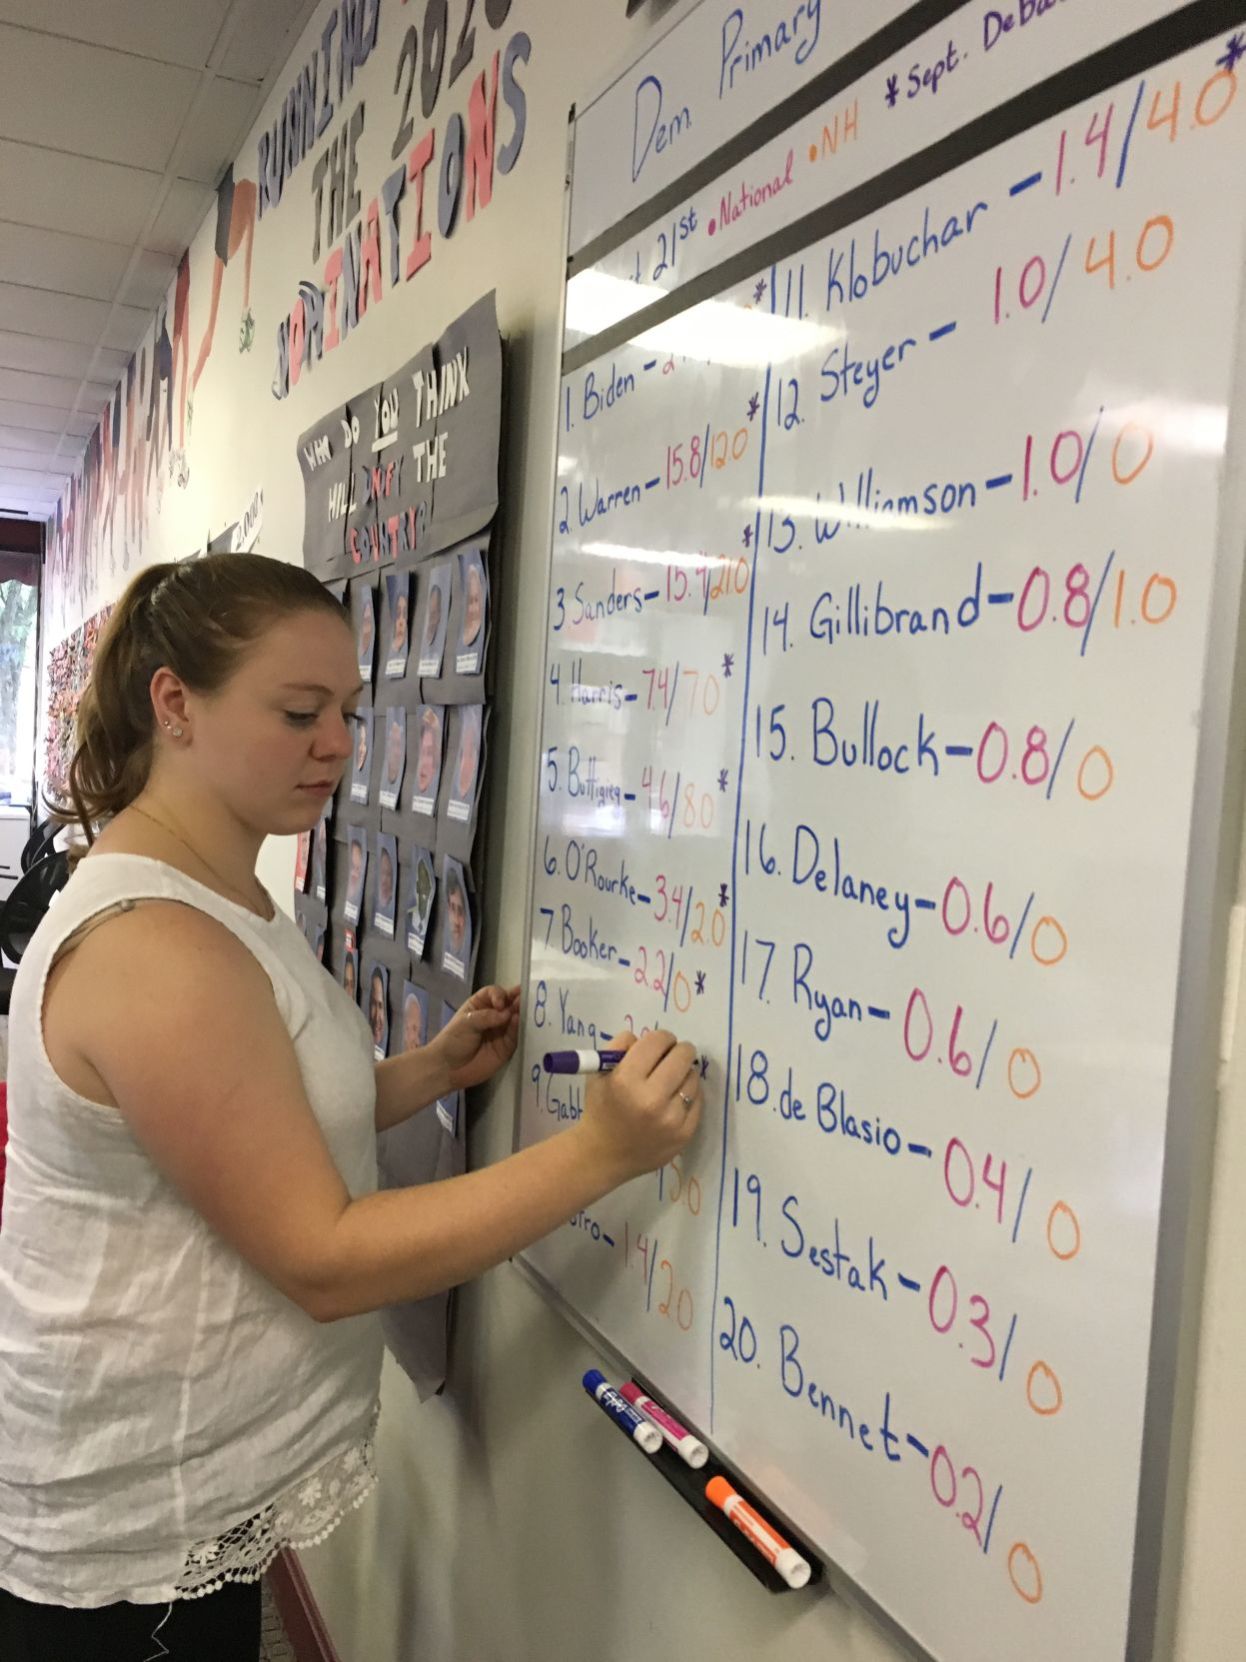 RUNNING
THE 2020
NOMINATIONS
WHO DO YOU THINK
WILL THE
COUNTRY?
Dem. Primary
21st • National • NH * Sept. Deba
1. Biden - *
2. Warren - 15.8/12.0 *
3 Sanders - 15.4/21.0 *
4. Harris - 7.4/7.0 *
5. Buttigieg - 4.6/8.0 *
6. O'Rourke - 3.4/2.0 *
7 Booker - 2.2/0 *
8. Yang - *
9. Gabb
1.4/2.0
11. Klobuchar - 1.4/4.0 *
12. Steyer - 1.0/4.0
13. Williamson - 1.0/0
14. Gillibrand - 0.8/1.0
15. Bullock - 0.8/0
16. Delaney - 0.6/0
17. Ryan - 0.6/0
18. de Blasio - 0.4/0
19. Sestak - 0.3/0
20. Bennet - 0.2/0